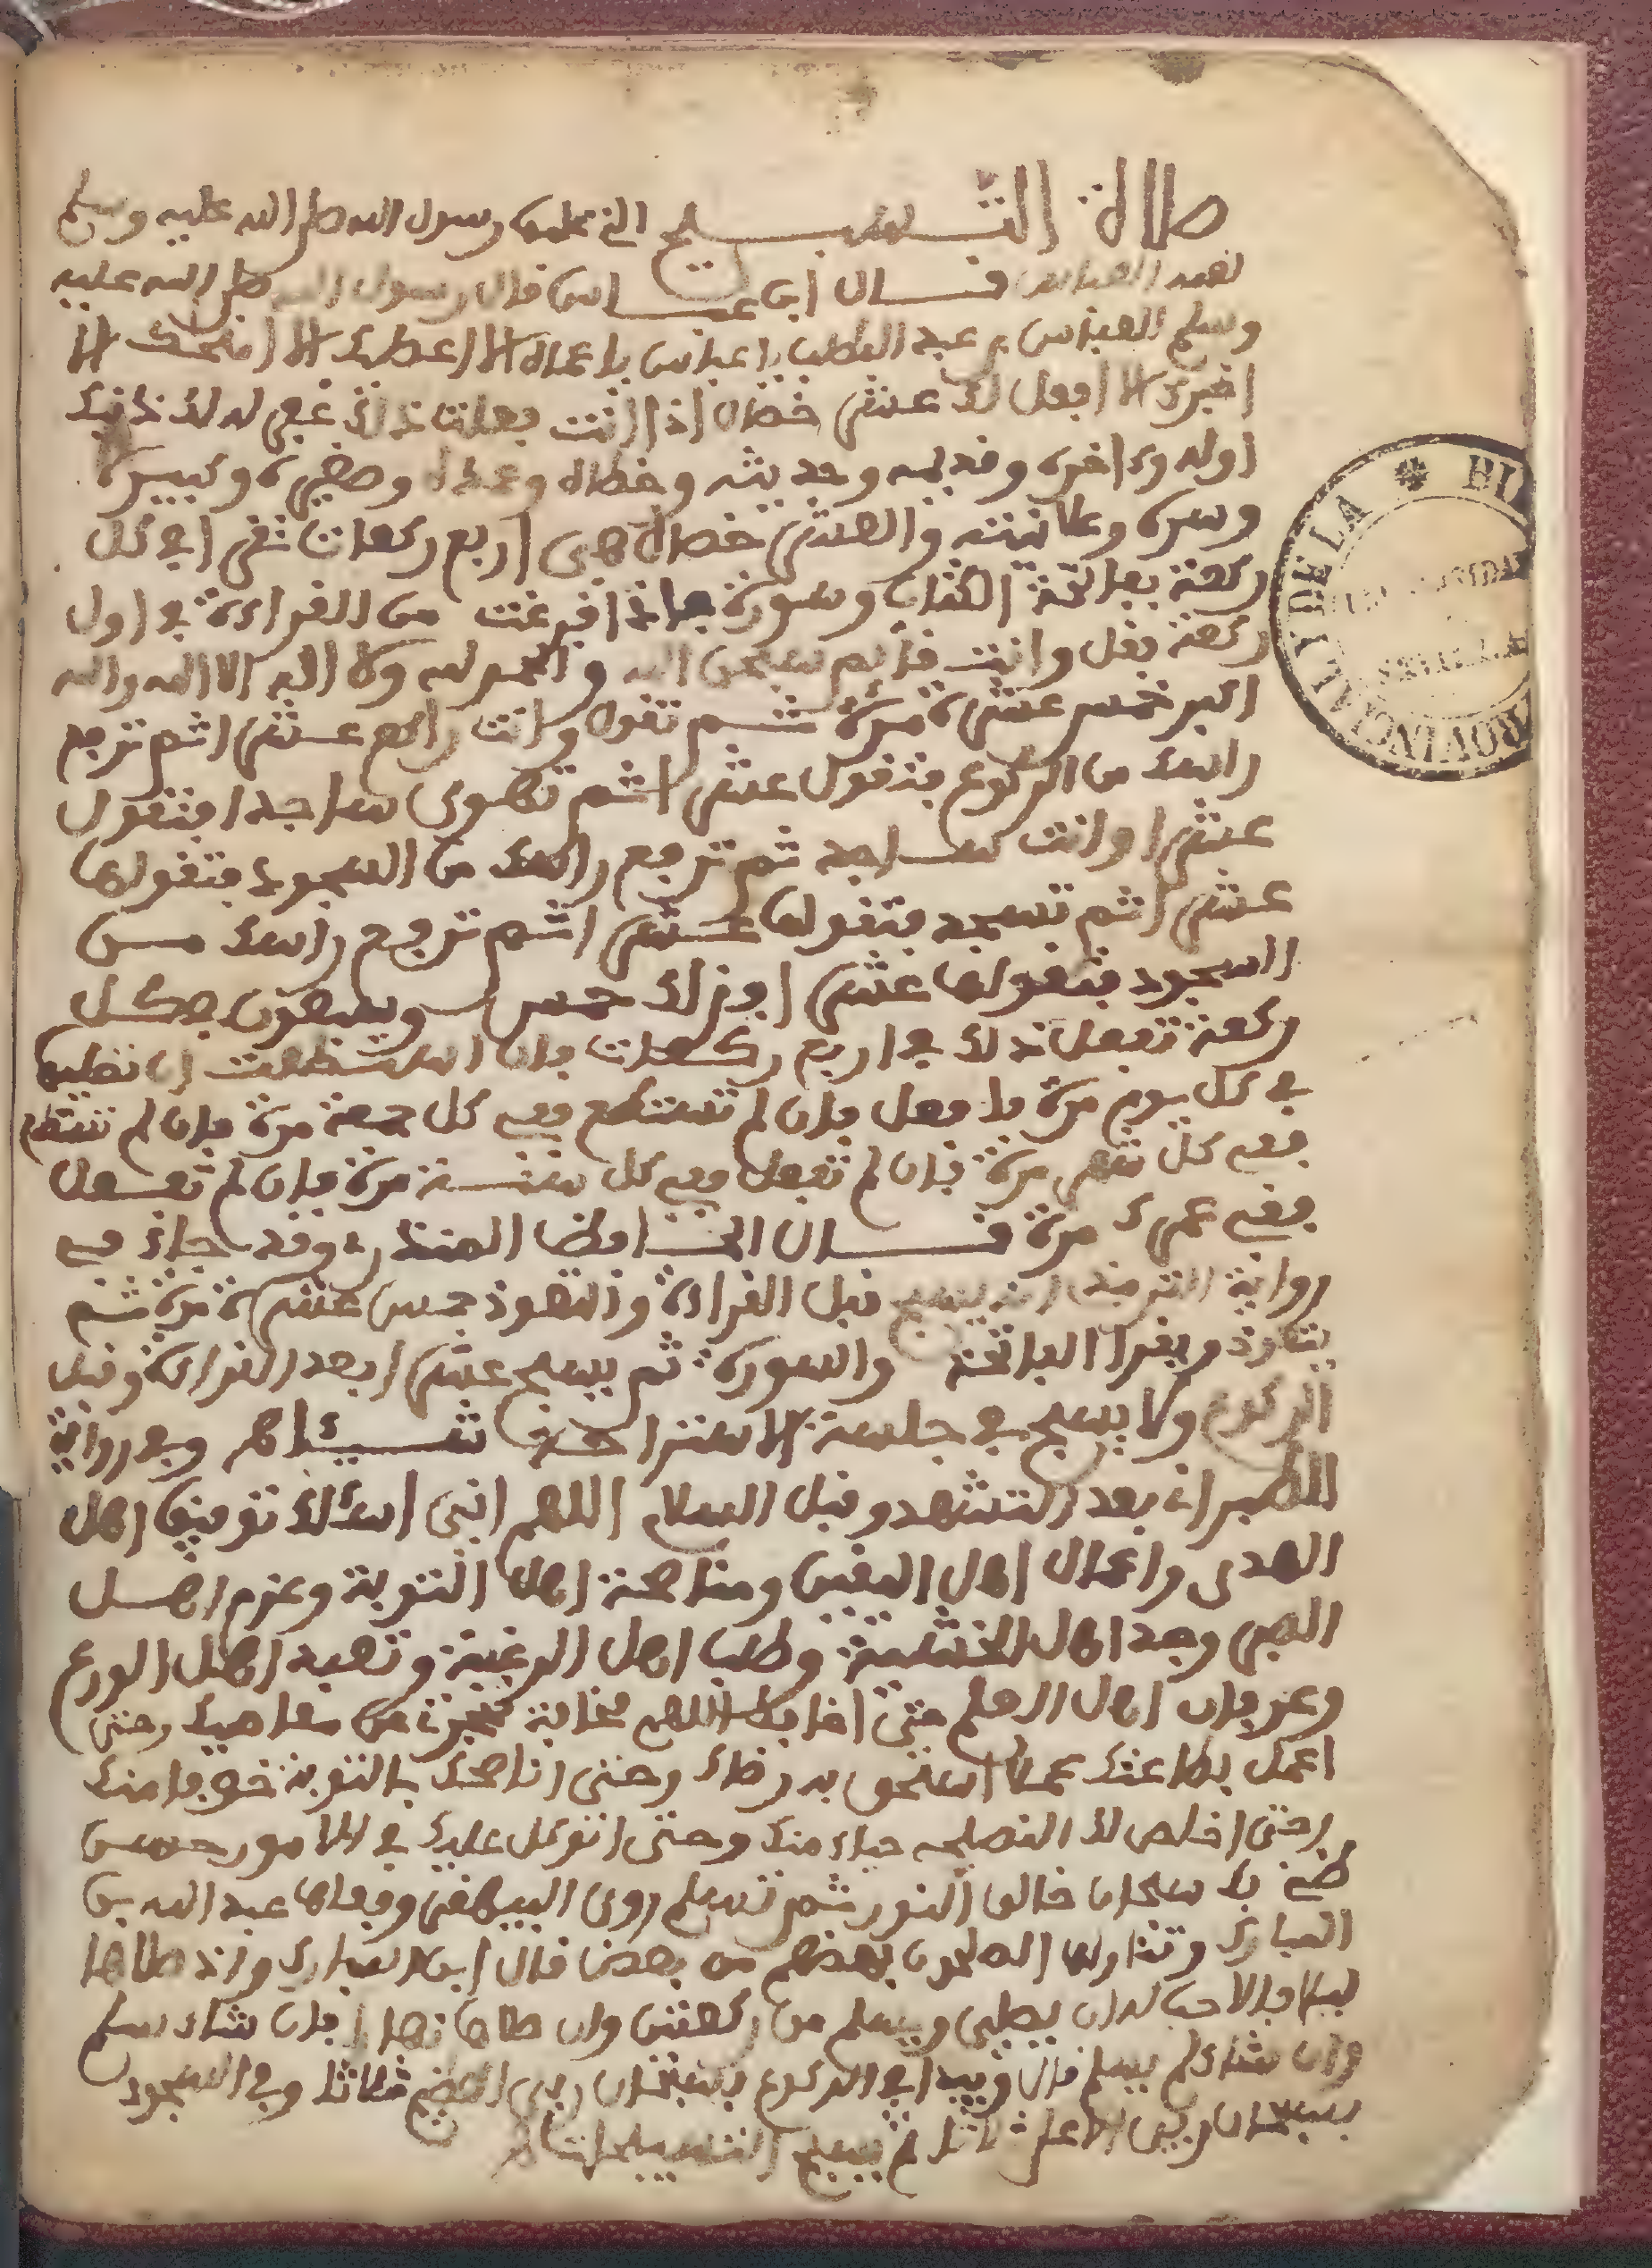 صلاة التسبيح التي علمها رسول الله صلى الله عليه وسلم
لعمه العباس قال ابن عباس قال رسول الله صلى الله عليه
وسلم للعباس بن عبد المطلب يا عباس يا عماه الا اعطيك الا امنحك الا
اخبرك الا افعل لك عشر خصال اذا انت فعلت ذلك غفر الله لك ذنبك
اوله وءاخره وقديمه وحديثه وخطاه وعمده وصغيره وكبيره
وسره وعلانيته والعشر خصال هي اربع ركعات تقرا في كل
ركعة بفاتحة الكتاب وسورة فاذا فرغت من القراءة في اول
ركعة فقل وانت قائم سبحن الله والحمد لله ولا اله الا الله والله
اكبر خمس عشرة مرة ثم تقول وانت راكع عشرا ثم ترفع
راسك من الركوع فتقول عشرا ثم تهوي ساجدا فتقول
عشرا وانت ساجد ثم ترفع راسك من السجود فتقولها
عشرا ثم تسجد فتقولها عشرا ثم ترفع راسك من
السجود فتقولها عشرا فذلك خمس وسبعون في كل
ركعة تفعل ذلك في اربع ركعات فان استطعت ان تصليها
في كل يوم مرة فافعل فان لم تستطع ففي كل جمعة مرة فان لم تستطع
ففي كل شهر مرة فان لم تفعل ففي كل سنة مرة فان لم تفعل
ففي عمرك مرة قال الحافظ المنذري وقد جاء في
رواية الترمذي انه يسبح قبل القراءة والتعوذ خمس عشرة مرة ثم
يتعوذ ويقرا الفاتحة والسورة ثم يسبح عشرا بعد القراءة وقبل
الركوع ولا يسبح في جلسة الاستراحة شيئا وفي رواية
الطبراني بعد التشهد وقبل السلام اللهم اني اسئلك توفيق اهل
الهدى واعمال اهل اليقين ومناصحة اهل التوبة وعزم اهل
الصبر وجد اهل الخشية وطلب اهل الرغبة وتعبد اهل الورع
وعرفان اهل العلم حتى اخافك اللهم مخافة تحجزني عن معاصيك وحتى
اعمل بطاعتك عملا استحق به رضاك وحتى اناصحك بالتوبة خوفا منك
وحتى اخلص لك النصيحه حياء منك وحتى اتوكل عليك في الامور حسن
ظن بك سبحان خالق النور ثم تسلم روى البيهقي وفعلها عبد الله بن
المبارك وتداولها الصلحون بعضهم من بعض قال ابن المبارك وان صلاها
ليلا فالاحب له ان يصلي ويسلم من ركعتين وان صلاها نهارا فان شاء سلم
وان شاء لم يسلم قال ويبدا في الركوع بسبحان ربي العظيم ثلاثا وفي السجود
بسبحان ربي الاعلى ثلاثا ثم يسبح التسبيحات
BI
PROVINCIAL Y DE LA
SEVILLA